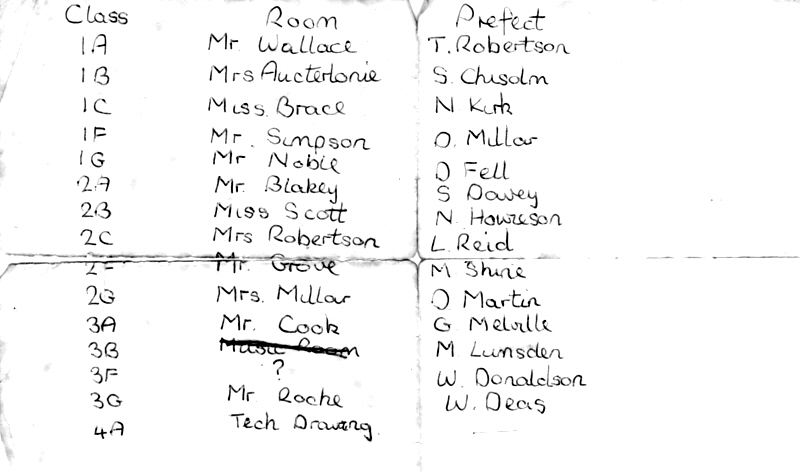 Class Room Prefect
1A Mr. Wallace T. Robertson
1B Mrs Aucterlonie S. Chisolm
1C Miss. Brace N Kirk
1F Mr. Simpson D. Millar
1G Mr Noble D Fell
2A Mr. Blakey S Davey
2B Miss Scott N. Howieson
2C Mrs Robertson L. Reid
2F Mr. Grove M Shirie
2G Mrs. Millar D Martin
3A Mr. Cook G Melville
3B Music Room M Lumsden
3F ? W. Donaldson
3G Mr Roche W. Deas
4A Tech Drawing